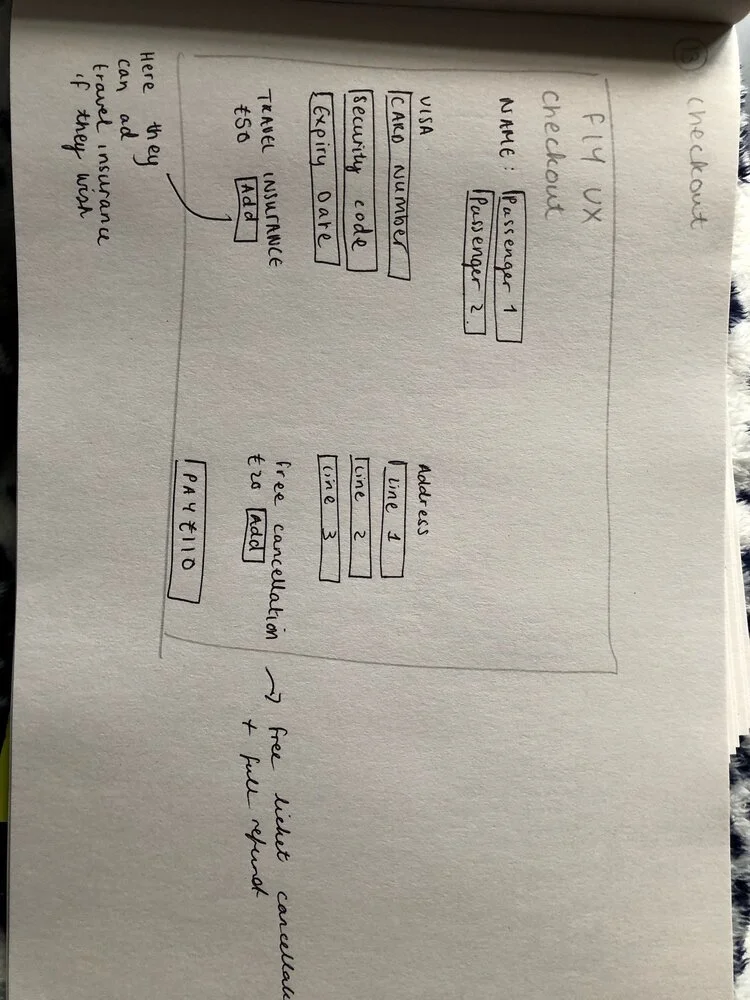 13
checkout
Fly UX
checkout
NAME: Passenger 1
Passenger 2
VISA
CARD NUMBER
security code
Expiry Date
Address
Line 1
Line 2
Line 3
TRAVEL INSURANCE
£50 Add
free cancellation → free ticket cancellati
£20 Add + full refund
PAY £110
Here they
can ad
travel insurance
if they wish